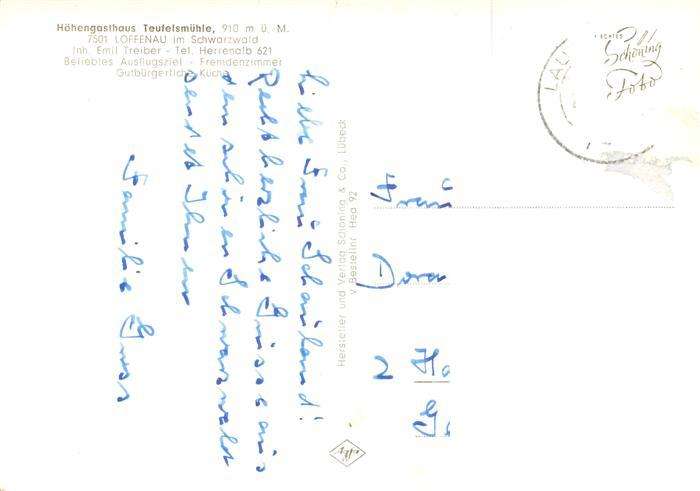 Höhengasthaus Teufelsmühle, 910 m ü. M.
7501 LOFFENAU im Schwarzwald
Inh. Emil Treiber - Tel. Herrenalb 621
Beliebtes Ausflugsziel - Fremdenzimmer
Gutbürgerliche Küche
Liebe Frau Schauland!
Recht herzliche Grüsse aus
dem schönen Schwarzwald
sendet Ihnen
Familie
Hersteller und Verlag Schöning & Co., Lübeck
Bestellnr. Hea 92
ECHTES
Schöning
Foto
Frau
Dora
2 Ha
G